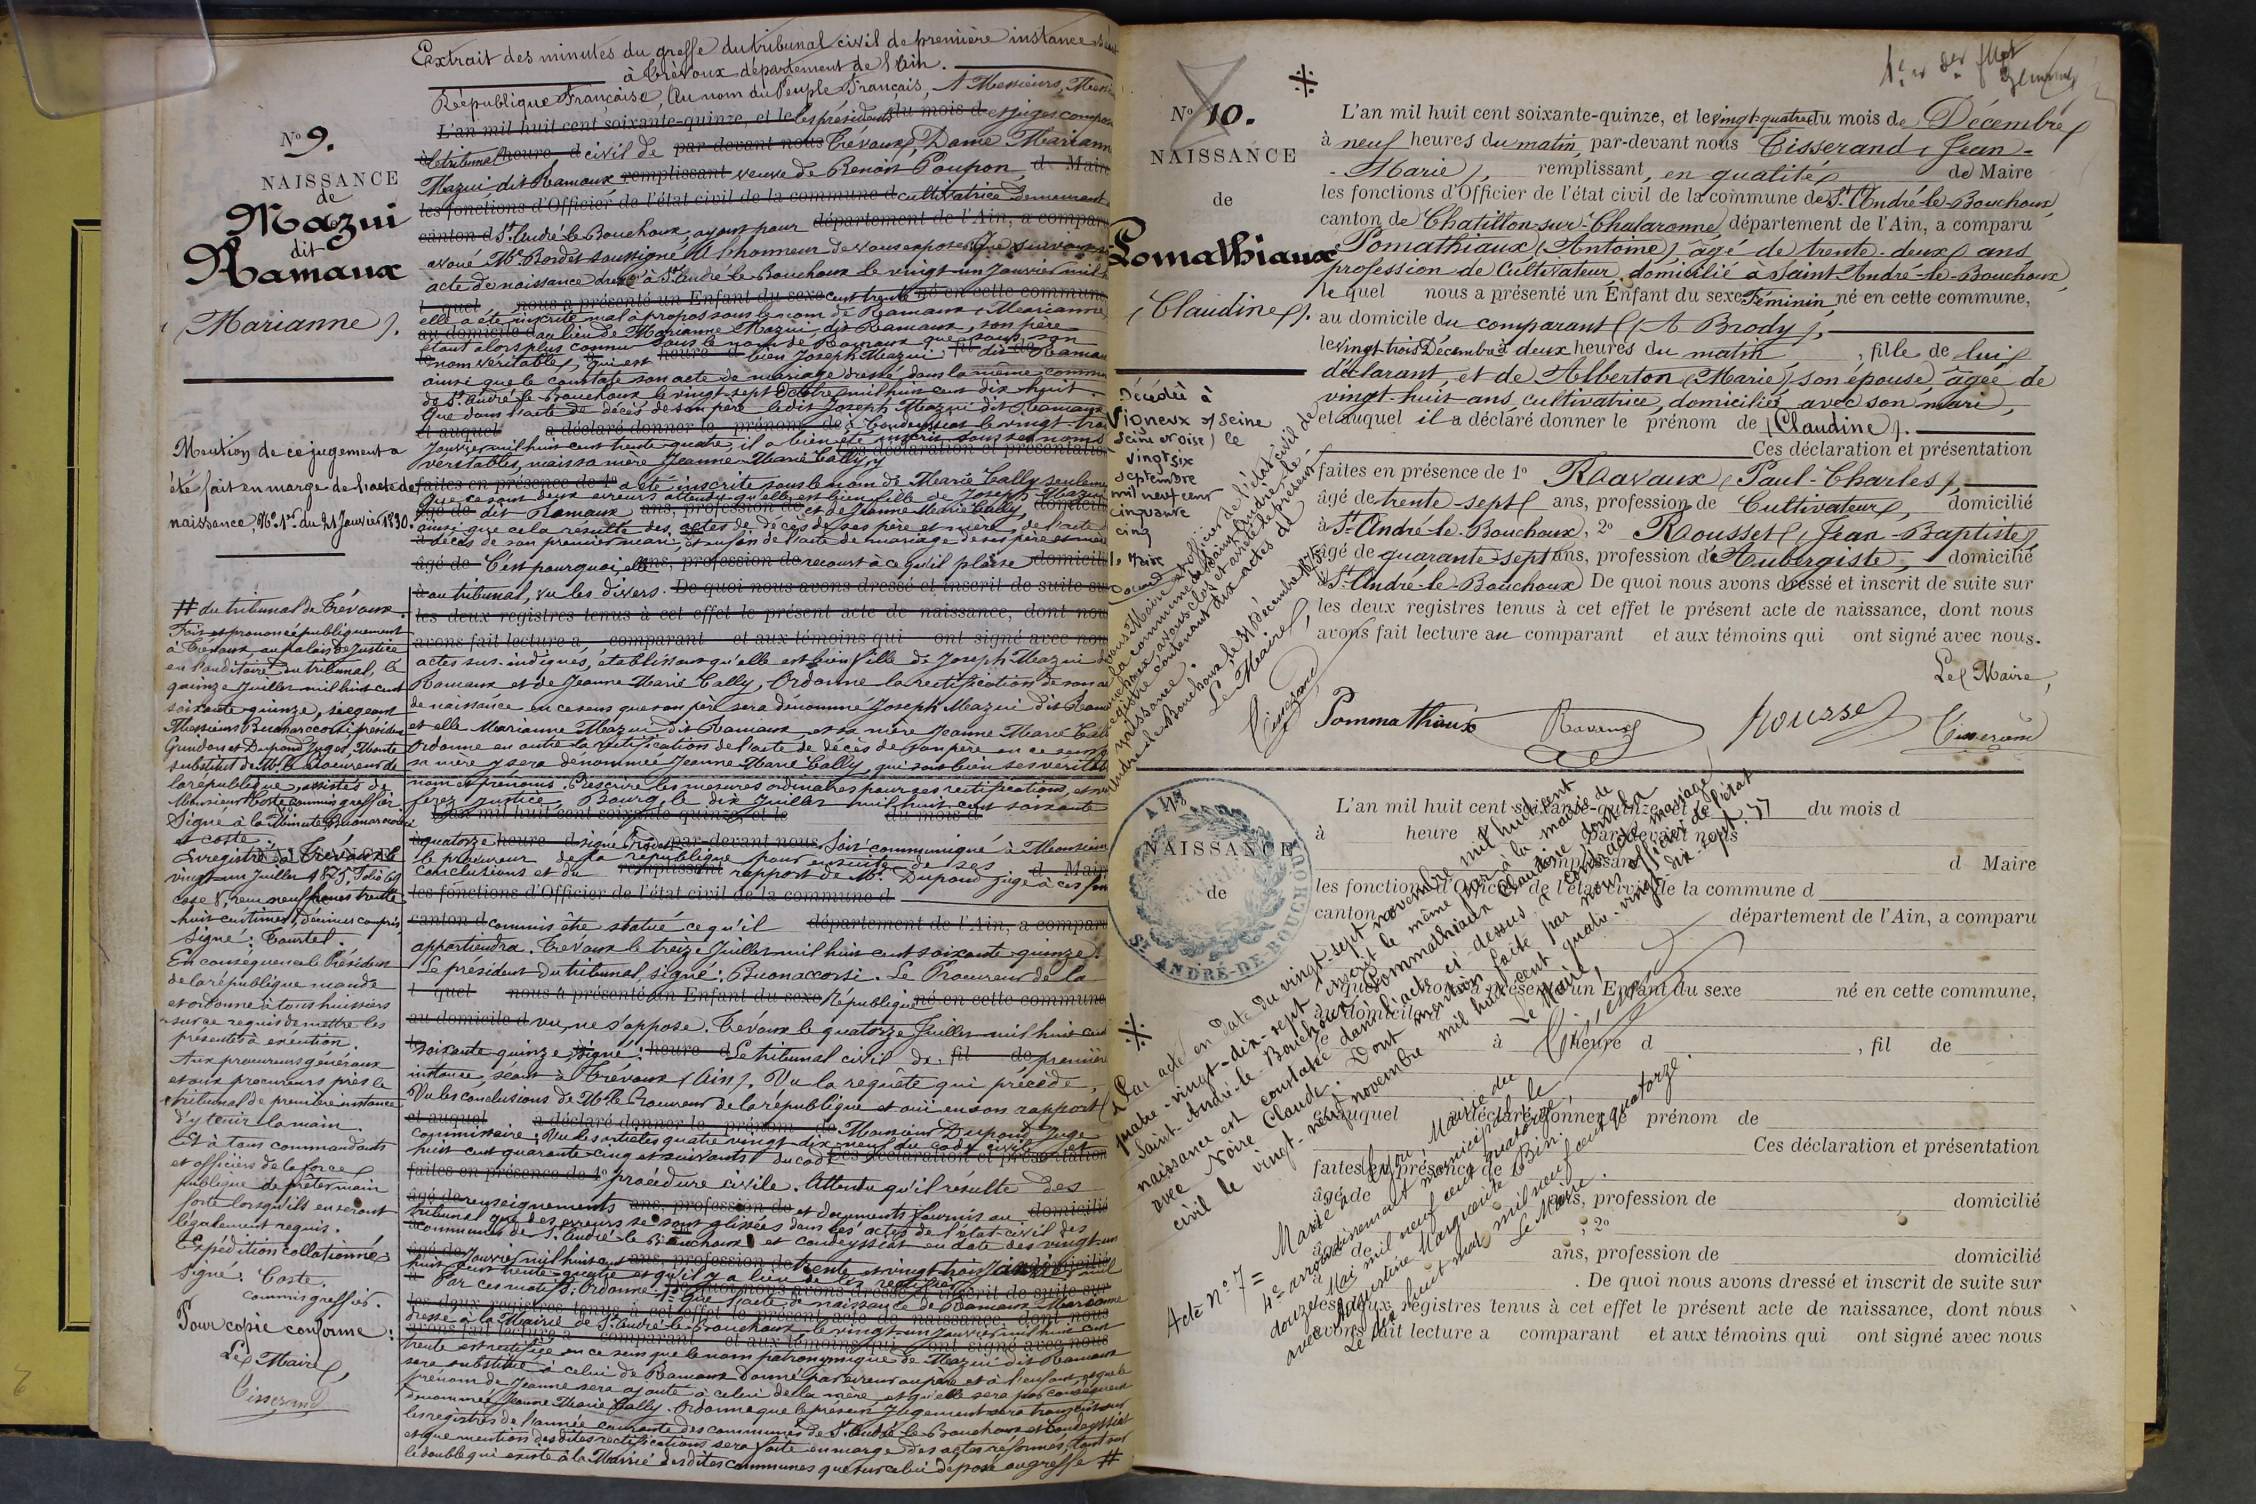 Extrait des minutes du greffe du tribunal civil de première instance séant
à Trévoux département de l'Ain.
République Française, Au nom du Peuple Français, A Messieurs, Messieurs
L'an mil huit cent soixante-quinze, et le les présidents du mois d et juges composant
le tribunal heure d civil de par-devant nous Trévoux, Dame Marianne
Mazui dit Ramaux remplissant veuve de Benoît Poupon, d Maire
les fonctions d'Officier de l'état civil de la commune d cultivatrice demeurant
canton d St André le Bouchoux, ayant pour département de l'Ain, a comparu
avoué Me Bordet soussigné, A l'honneur de vous exposer Que suivant
acte de naissance dressé à St André le Bouchoux le vingt-un Janvier mil
l quel nous a présenté un Enfant du sexe cent trente né en cette commune
elle a été inscrite mal à propos sous le nom de Ramaux (Marianne)
au domicile d au lieu de Marianne Mazui dit Ramaux, son père
étant alors plus connu sous le nom de Ramaux que sous son
nom véritable, qui est heure d bien Joseph Mazui fil dit de Ramaux
ainsi que le constate son acte de mariage dressé dans la même commune
de St André le Bouchoux le vingt-sept Octobre mil huit cent dix huit.
Que dans l'acte de décès de son père ledit Joseph Mazui dit Ramaux
et auquel a déclaré donner le prénom de à Condeyssiat le vingt-trois
Janvier mil huit cent trente quatre, il a bien été inscrit sous ses noms
véritables, mais sa mère Jeanne-Marie Cally, y Ces déclaration et présentation
faites en présence de 1o a été inscrite sous le nom de Marie Cally seulement
Que ce sont deux erreurs attendu qu'elle est bien fille de Joseph Mazui
âgé de dit Ramaux ans, profession de et de Jeanne Marie Cally, domicilié
ainsi que cela résulte des actes de décès de ses père et mère, de l'acte de
décès de son premier mari, et enfin de l'acte de mariage de ses père et mère
âgé de C'est pourquoi, elle ans, profession de recourt à ce qu'il plaise domicilié
à au tribunal, vu les divers. De quoi nous avons dressé et inscrit de suite sur
les deux registres tenus à cet effet le présent acte de naissance, dont nous
avons fait lecture a comparant et aux témoins qui ont signé avec nous
actes sus-indiqués, établissant qu'elle est bien fille de Joseph Mazui dit
Ramaux et de Jeanne Marie Cally, Ordonne la rectification de son acte
de naissance en ce sens que son père sera dénommé Joseph Mazui dit Ramaux
et elle Marianne Mazui dit Ramaux et sa mère Jeanne Marie Cally
Ordonne en outre la rectification de l'acte de décès de son père en ce sens que
sa mère y sera dénommée Jeanne Marie Cally, qui sont bien ses véritables
nom et prénoms. Prescrire les mesures ordinaires pour ces rectifications, et vous
ferez justice, Bourg, le dix Juillet mil huit cent soixante
L'an mil huit cent soixante-quinze, et le du mois d
à quatorze heure d signé par-devant nous Soit communiqué à Monsieur
le procureur de la république pour ensuite de ses
conclusions et du remplissant rapport de Mr Dupond juge à ces fins d Maire
les fonctions d'Officier de l'état civil de la commune d
canton d commis être statué ce qu'il département de l'Ain, a comparu
appartiendra. Trévoux le treize Juillet mil huit cent soixante quinze.
Le président du tribunal signé: Buonaccorsi. Le Procureur de la
l quel nous a présenté un Enfant du sexe République né en cette commune
au domicile d vu, ne s'oppose. Trévoux le quatorze Juillet mil huit cent
soixante quinze, signé: heure d Le tribunal civil de fil de première
instance, séant à Trévoux (Ain). Vu la requête qui précède,
Vu les conclusions de Mr le Procureur de la république et ouï en son rapport
et auquel a déclaré donner le prénom de Monsieur Dupond Juge
commissaire; Vu les articles quatre vingt dix-neuf du code civil et
huit cent quarante cinq et suivants du code Ces déclaration et présentation
faites en présence de 1o procédure civile. Attendu qu'il résulte des
âgé de renseignements ans, profession de et documents fournis au domicilié
tribunal que des erreurs se sont glissées dans les actes de l'état-civil des
communes de St André le Bouchoux et Condeyssiat en date des vingt-un
âgé de Janvier mil huit cent ans, profession de trente et vingt trois Janvier mil domicilié
huit cent trente quatre et qu'il y a lieu de les rectifier
Par ces motifs; Ordonne 1o Que l'acte de naissance de Ramaux Marianne
les deux registres tenus à cet effet le présent acte de naissance, dont nous
dressé à la Mairie de St André le Bouchoux, le vingt-un Janvier mil huit cent
avons fait lecture a comparant et aux témoins qui ont signé avec nous
trente est rectifié en ce sens que le nom patronymique de Mazui dit Ramaux
sera substitué à celui de Ramaux donné par erreur au père et à l'enfant, et que le
prénom de Jeanne sera ajouté à celui de la mère, et qu'elle sera par conséquent
dénommée Jeanne Marie Cally. Ordonne que le présent Jugement sera transcrit sur
les registres de l'année courante des communes de St André le Bouchoux et Condeyssiat
et que mention des dites rectifications sera faite en marge des actes réformés, tant sur
le double qui existe à la Mairie des dites communes que sur celui déposé au greffe #
No 9.
NAISSANCE
de
Mazui
dit
Ramaux
(Marianne).
Mention de ce jugement a
été fait en marge de l'acte de
naissance, No 1er du 21 Janvier 1830.
# du tribunal de Trévoux.
Fait et prononcé publiquement
à Trévoux, au palais de Justice
en l'auditoire du tribunal, le
quinze Juillet mil huit cent
soixante quinze, siégeant
Messieurs Buonaccorsi président
Grindon et Dupond Juges, Monte
substitut de Mr le Procureur de
la république, assistés de
Monsieur Coste commis greffier.
Signé à la Minute Buonaccorsi
et Coste.
NAISSANCE
Enregistré à Trévoux le
vingt un Juillet 1875, Folio 69
case 8, reçu neuf francs trente
huit centimes, décimes compris
Signé: Tourtel.
En conséquence le Président
de la république mande
et ordonne à tous huissiers
sur ce requis de mettre les
présentes à exécution.
Aux procureurs généraux
et aux procureurs près le
tribunal de première instance
d'y tenir la main.
Et à tous commandants
et officiers de la force
publique de prêter main
forte lorsqu'ils en seront
légalement requis.
Expédition collationnée
Signé: Coste.
commis greffier.
Pour copie conforme:
Le Maire,
Tisserand
No 10.
NAISSANCE
de
Pomathiaux
(Claudine).
L'an mil huit cent soixante-quinze, et le vingt-quatre du mois de Décembre
à neuf heures du matin, par-devant nous Tisserand (Jean-
-Marie), remplissant, en qualité de Maire
les fonctions d'Officier de l'état civil de la commune de St André-le-Bouchoux,
canton de Chatillon-sur-Chalaronne, département de l'Ain, a comparu
Pomathiaux (Antoine), âgé de trente-deux ans
profession de Cultivateur, domicilié à Saint-André-le-Bouchoux,
lequel nous a présenté un Enfant du sexe Féminin, né en cette commune,
au domicile du comparant (A Brody),
le vingt-trois Décembre à deux heures du matin, fille de lui
déclarant, et de Alberton (Marie), son épouse, âgée de
vingt-huit ans, cultivatrice, domiciliée avec son mari,
et auquel il a déclaré donner le prénom de (Claudine).
Ces déclaration et présentation
faites en présence de 1o Ravaux (Paul-Charles),
âgé de trente-sept ans, profession de Cultivateur, domicilié
à St André-le-Bouchoux, 2o Rousset (Jean-Baptiste)
âgé de quarante-sept ans, profession d'Aubergiste, domicilié
à St André-le-Bouchoux De quoi nous avons dressé et inscrit de suite sur
les deux registres tenus à cet effet le présent acte de naissance, dont nous
avons fait lecture au comparant et aux témoins qui ont signé avec nous.
Le Maire,
Pommathiaux Ravaux Rousset Tisserand
Décédée à
Vigneux s/ Seine
(Seine et Oise) le
vingt six
septembre
mil neuf cent
cinquante
cinq
le Maire
Nous Maire et officier de l'état civil de
la commune de Saint André-le-
Bouchoux, avons clos et arrêté le présent
registre contenant dix actes de
naissance.
André-le-Bouchoux, le 31 décembre 1875.
Le Maire,
Tisserand
L'an mil huit cent soixante-quinze, et le du mois d
à heure d par-devant nous
remplissant d Maire
NAISSANCE
de
MAIRIE
ST ANDRÉ-DE-BOUCHOUX
les fonctions d'Officier de l'état civil de la commune d
canton d département de l'Ain, a comparu
l quel nous a présenté un Enfant du sexe né en cette commune,
au domicile d
le à heure d , fil de
et auquel a déclaré donner le prénom de
Ces déclaration et présentation
faites en présence de 1o
âgé de ans, profession de domicilié
à , 2o
âgé de ans, profession de domicilié
à . De quoi nous avons dressé et inscrit de suite sur
les deux registres tenus à cet effet le présent acte de naissance, dont nous
avons fait lecture a comparant et aux témoins qui ont signé avec nous
Par acte en date du vingt-sept novembre mil huit cent
quatre-vingt-dix-sept inscrit le même jour à la mairie de
Saint-André-le-Bouchoux Pommathiaux Claudine dont la
naissance est constatée dans l'acte ci-dessus a contracté mariage
avec Noire Claude. Dont mention faite par nous officier de l'état
civil le vingt-neuf novembre mil huit cent quatre-vingt-dix-sept.
Le Maire,
Tisserand
Acte no 7 =
Marié à Lyon Mairie du
4e arrondissement municipal le
douze Mai mil neuf cent quatorze,
avec Augustine Marguerite Bin.
Le dix huit mai mil neuf cent quatorze.
Le Maire.